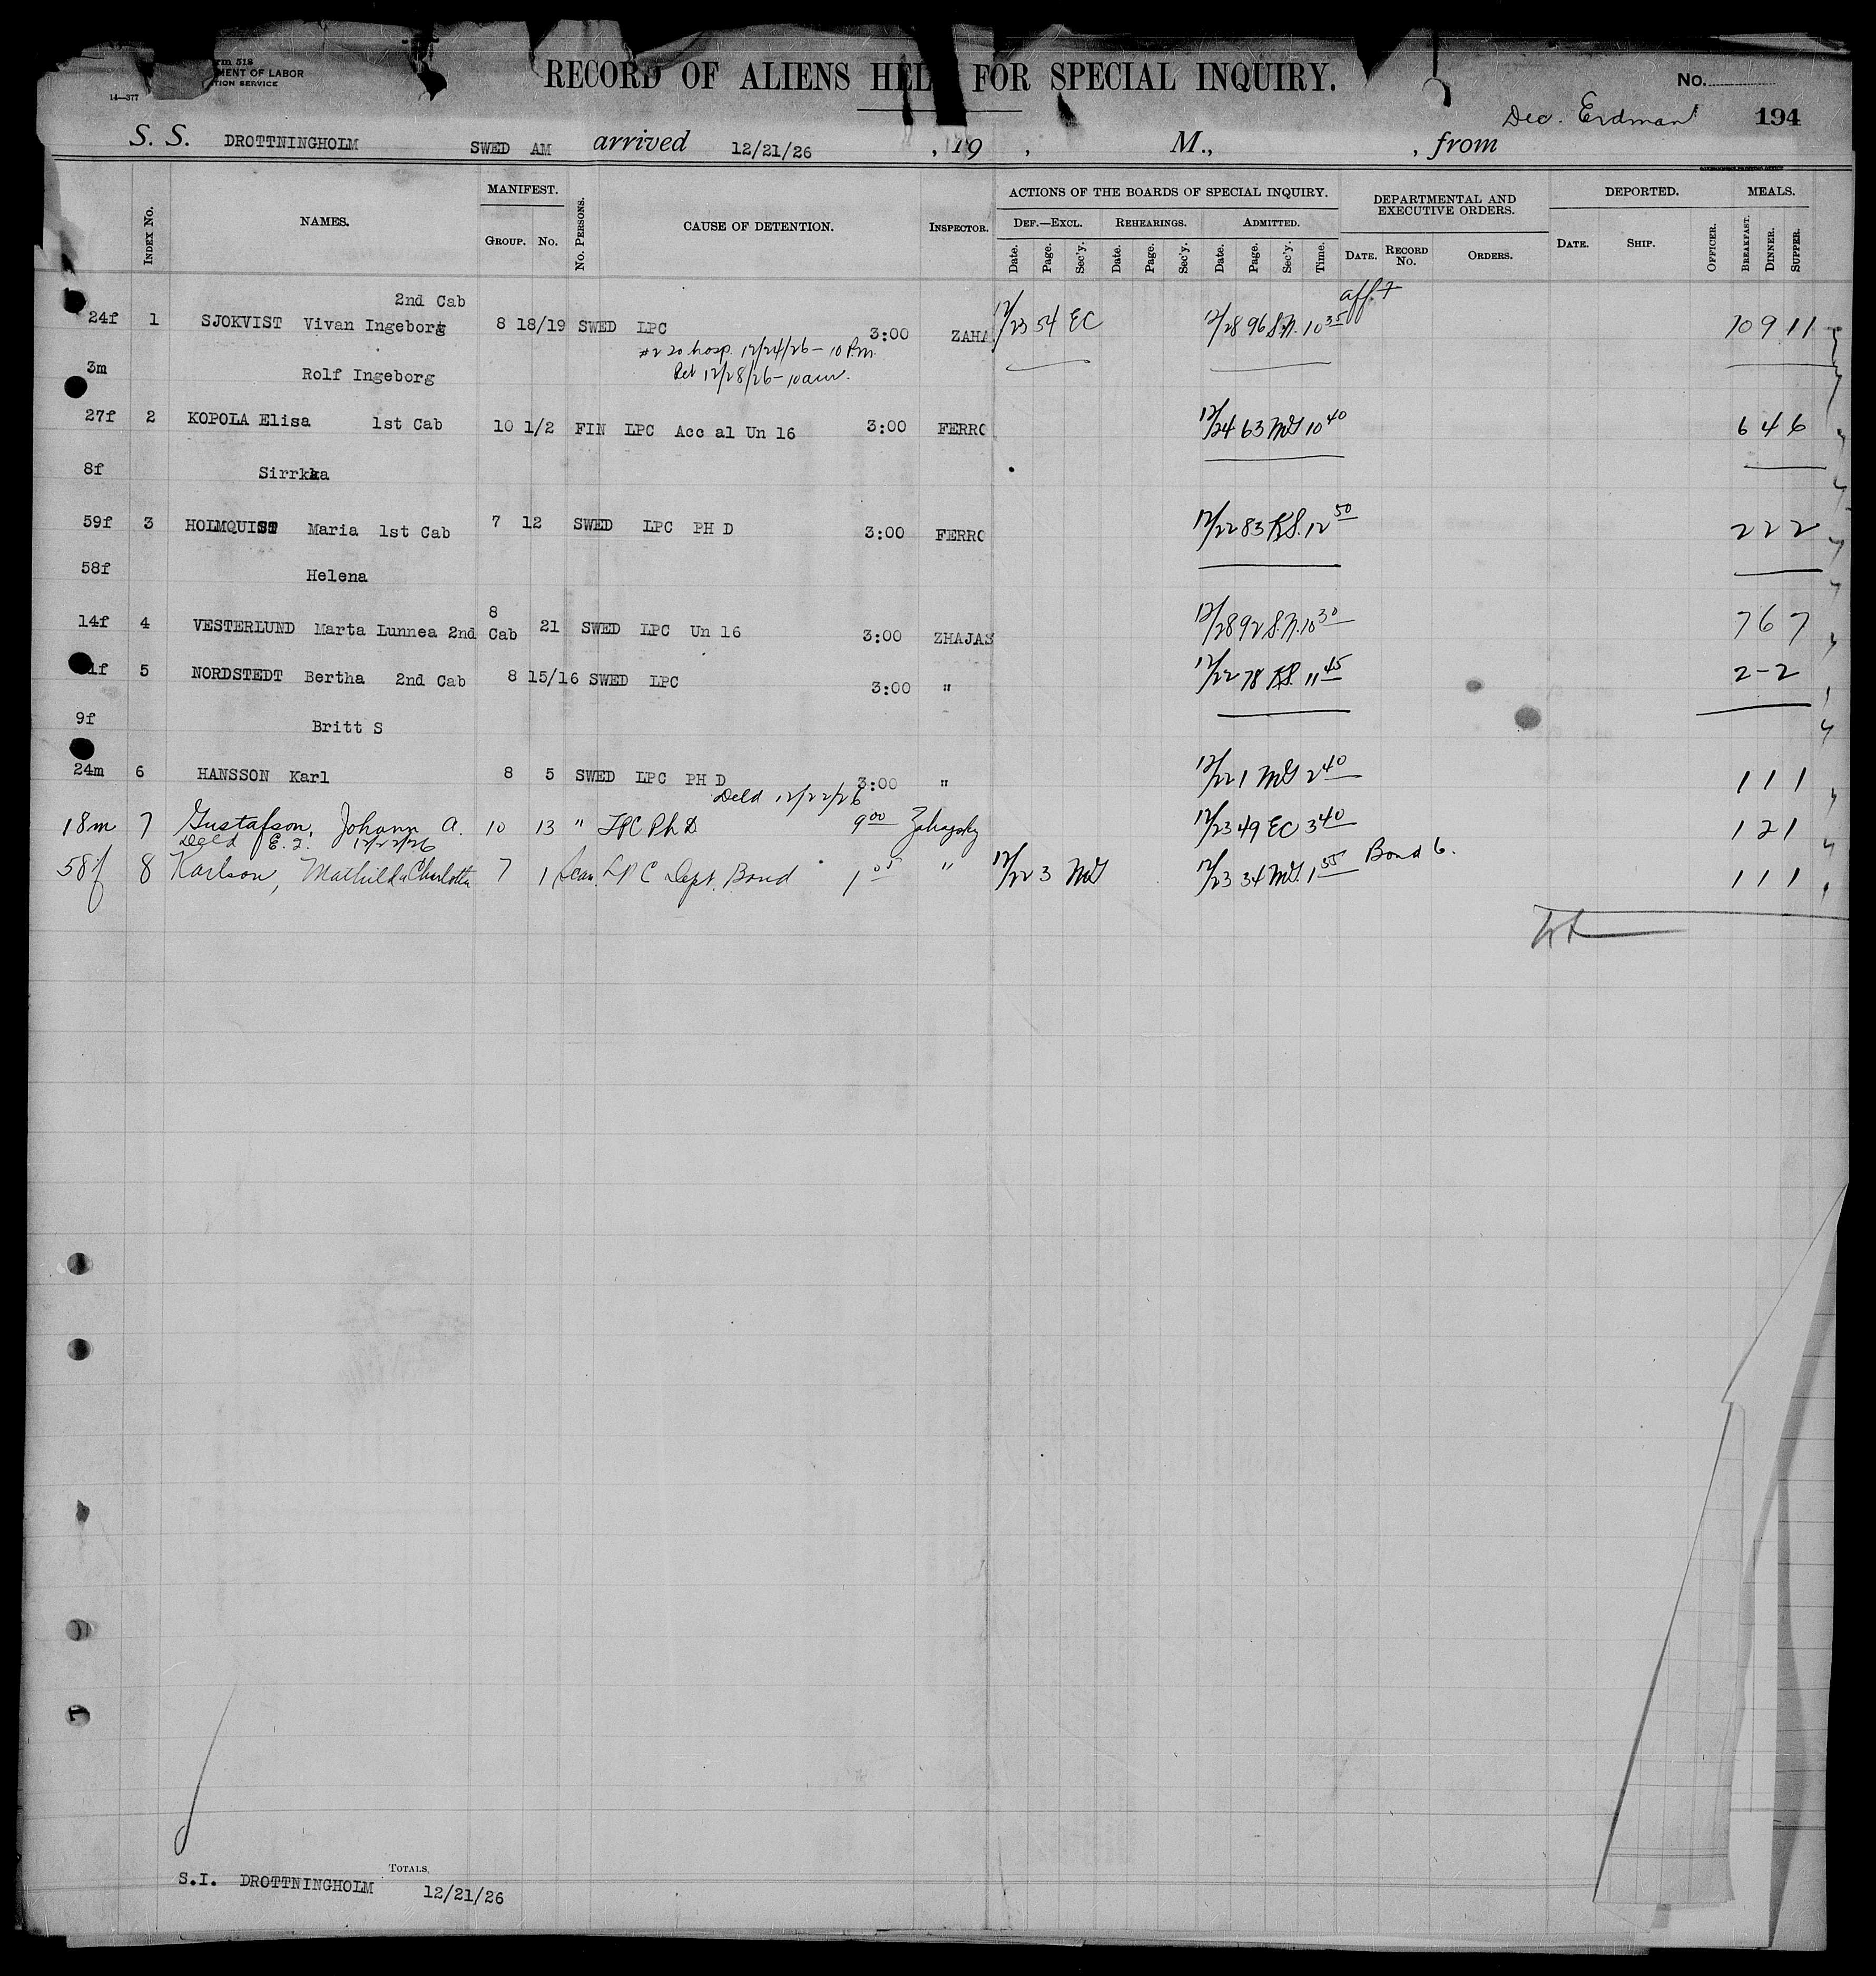 rm 518
MENT OF LABOR
TION SERVICE
14—577
RECORD OF ALIENS HEL FOR SPECIAL INQUIRY.
No.
Dec. Erdman
194
S. S. DROTTNINGHOLM SWED AM arrived 12/21/26 , 19 , M., , from
INDEX No. NAMES. MANIFEST. GROUP. No. No. PERSONS. CAUSE OF DETENTION. INSPECTOR. ACTIONS OF THE BOARDS OF SPECIAL INQUIRY. DEF.—EXCL. REHEARINGS. ADMITTED. DEPARTMENTAL AND EXECUTIVE ORDERS. DEPORTED. MEALS.
Date. Page. Sec'y. Date. Page. Sec'y. Date. Page. Sec'y. Time. DATE. RECORD No. ORDERS. DATE. SHIP. OFFICER. BREAKFAST. DINNER. SUPPER.
2nd Cab aff. 7
24f 1 SJOKVIST Vivan Ingeborg 8 18/19 SWED LPC 3:00 ZAHA 12/23 54 EC 12/28 96 S.N. 10 35 10 9 11
#2 to hosp. 12/24/26 — 10 P.m.
3m Rolf Ingeborg Ret 12/28/26 — 10 am.
27f 2 KOPOLA Elisa 1st Cab 10 1/2 FIN LPC Acc al Un 16 3:00 FERRO 12/24 63 MG 10 40 6 4 6
8f Sirrkka
59f 3 HOLMQUIST Maria 1st Cab 7 12 SWED LPC PH D 3:00 FERRO 12/22 83 KS. 12 50 2 2 2
58f Helena
14f 4 VESTERLUND Marta Lunnea 2nd Cab 8 21 SWED LPC Un 16 3:00 ZHAJAS 12/28 92 S.N. 10 30 7 6 7
1f 5 NORDSTEDT Bertha 2nd Cab 8 15/16 SWED LPC 3:00 " 12/22 78 KS. 11 45 2 - 2
9f Britt S
24m 6 HANSSON Karl 8 5 SWED LPC PH D 3:00 " 12/22 1 MG 2 40 1 1 1
Deld 12/22/26
18m 7 Gustafson, Johann A. 10 13 " LPC Ph D 9 00 Zahajsky 12/23 49 EC 3 40 1 2 1
Deld E. I. 12/22/26
58f 8 Karlson, Mathilda Charlotta 7 1 Scan. LPC Dept. Bond 1 05 " 12/22 3 MG 12/23 34 MG. 1 55 Bond 6. 1 1 1
TOTALS,
S.I. DROTTNINGHOLM 12/21/26